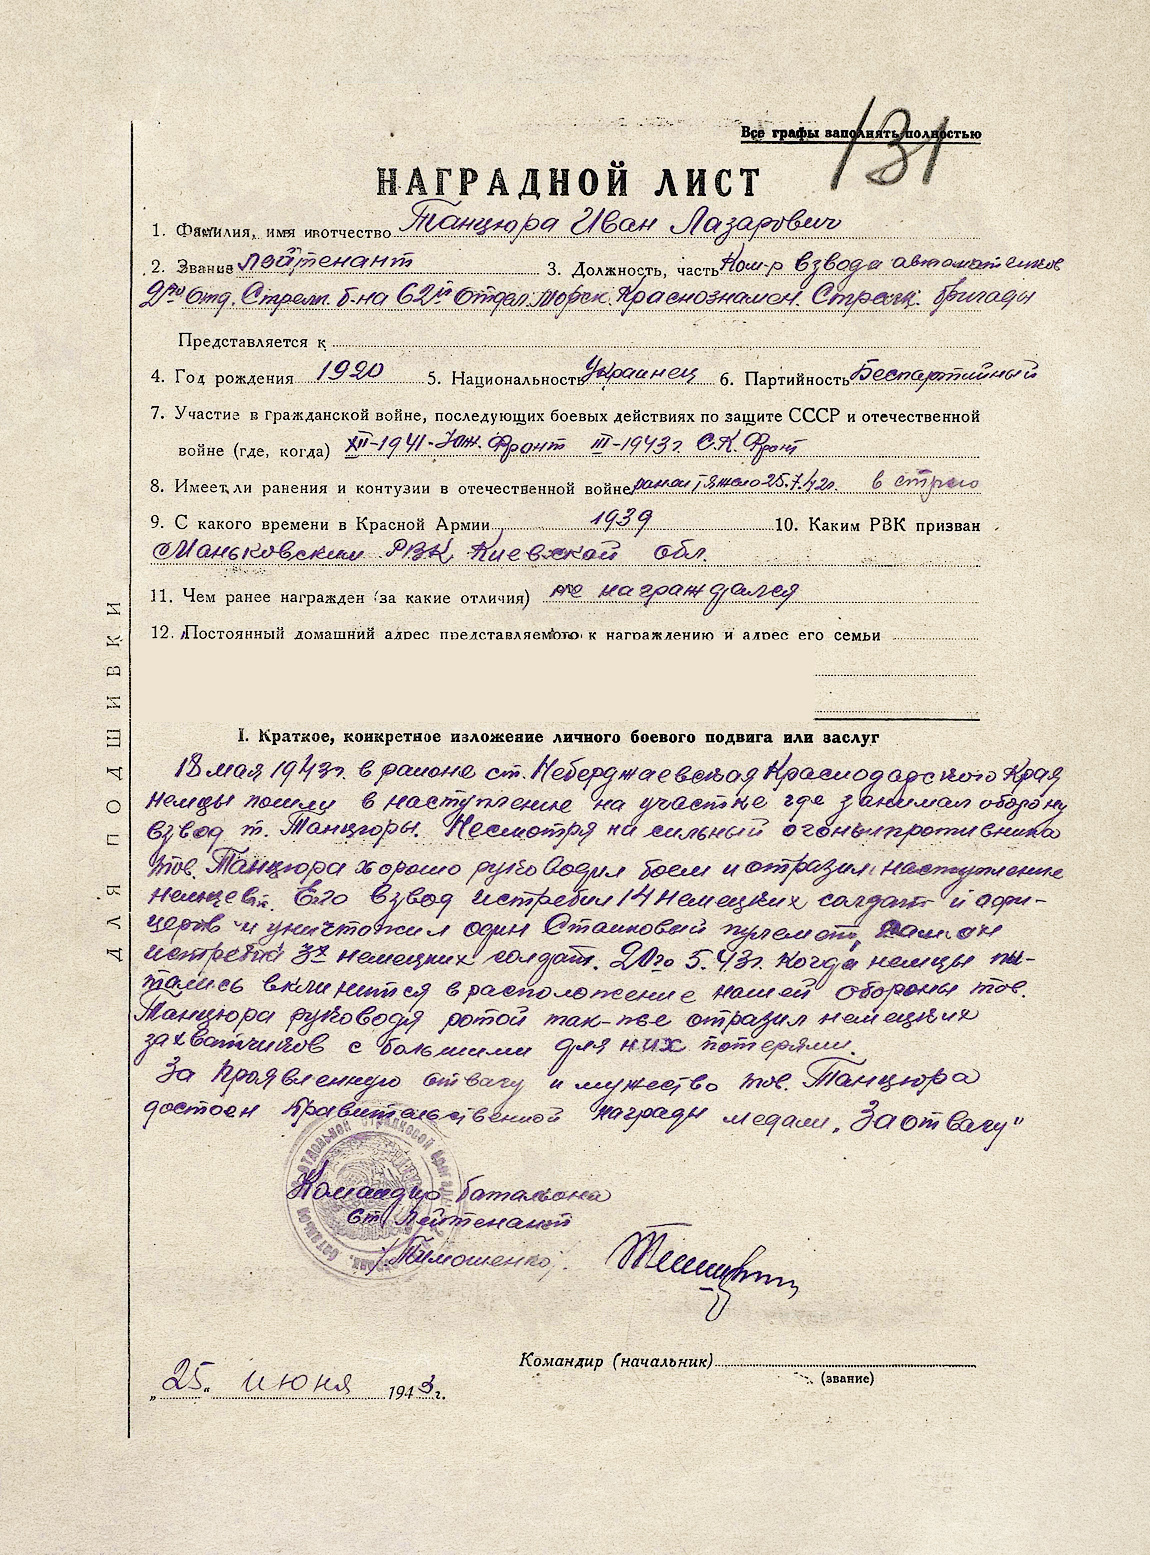 131
Все графы заполнять полностью
НАГРАДНОЙ ЛИСТ
1. Фамилия, имя и отчество Танцюра Иван Лазарович
2. Звание Лейтенант 3. Должность, часть Ком-р взвода автоматчиков
2го Отд. Стрелк. б-на 62й отдел. морск. Краснознамен. Стрелк. бригады
Представляется к
4. Год рождения 1920 5. Национальность Украинец 6. Партийность Беспартийный
7. Участие в гражданской войне, последующих боевых действиях по защите СССР и отечественной
войне (где, когда) XII-1941-Юж. Фронт III-1943г. С.К. Фронт
8. Имеет ли ранения и контузии в отечественной войне ранен тяжело 25.7.42г. в строю
9. С какого времени в Красной Армии 1939 10. Каким РВК призван
Маньковским РВК Киевской обл.
11. Чем ранее награжден (за какие отличия) не награждался
12. Постоянный домашний адрес представляемого к награждению и адрес его семьи
I. Краткое, конкретное изложение личного боевого подвига или заслуг
18 мая 1943г. в районе ст. Неберджаевская Краснодарского Края
немцы пошли в наступление на участке где занимал оборону
взвод т. Танцюры. Несмотря на сильный огонь противника
тов. Танцюра хорошо руководил боем и отразил наступление
немцев. Его взвод истребил 14 немецких солдат и офи-
церов и уничтожил один Станковый пулемет, сам он
истребил 3х немецких солдат. 20го 5.43г. когда немцы пы-
тались вклинится в расположение нашей обороны тов.
Танцюра руководя ротой так-же отразил немецких
захватчиков с большими для них потерями.
За проявленную отвагу и мужество тов. Танцюра
достоен правительственной награды медали „За отвагу"
Командир батальона
Ст. Лейтенант
/Тимошенко/.
Командир (начальник)
(звание)
„25" июня 1943 г.
ДЛЯ ПОДШИВКИ